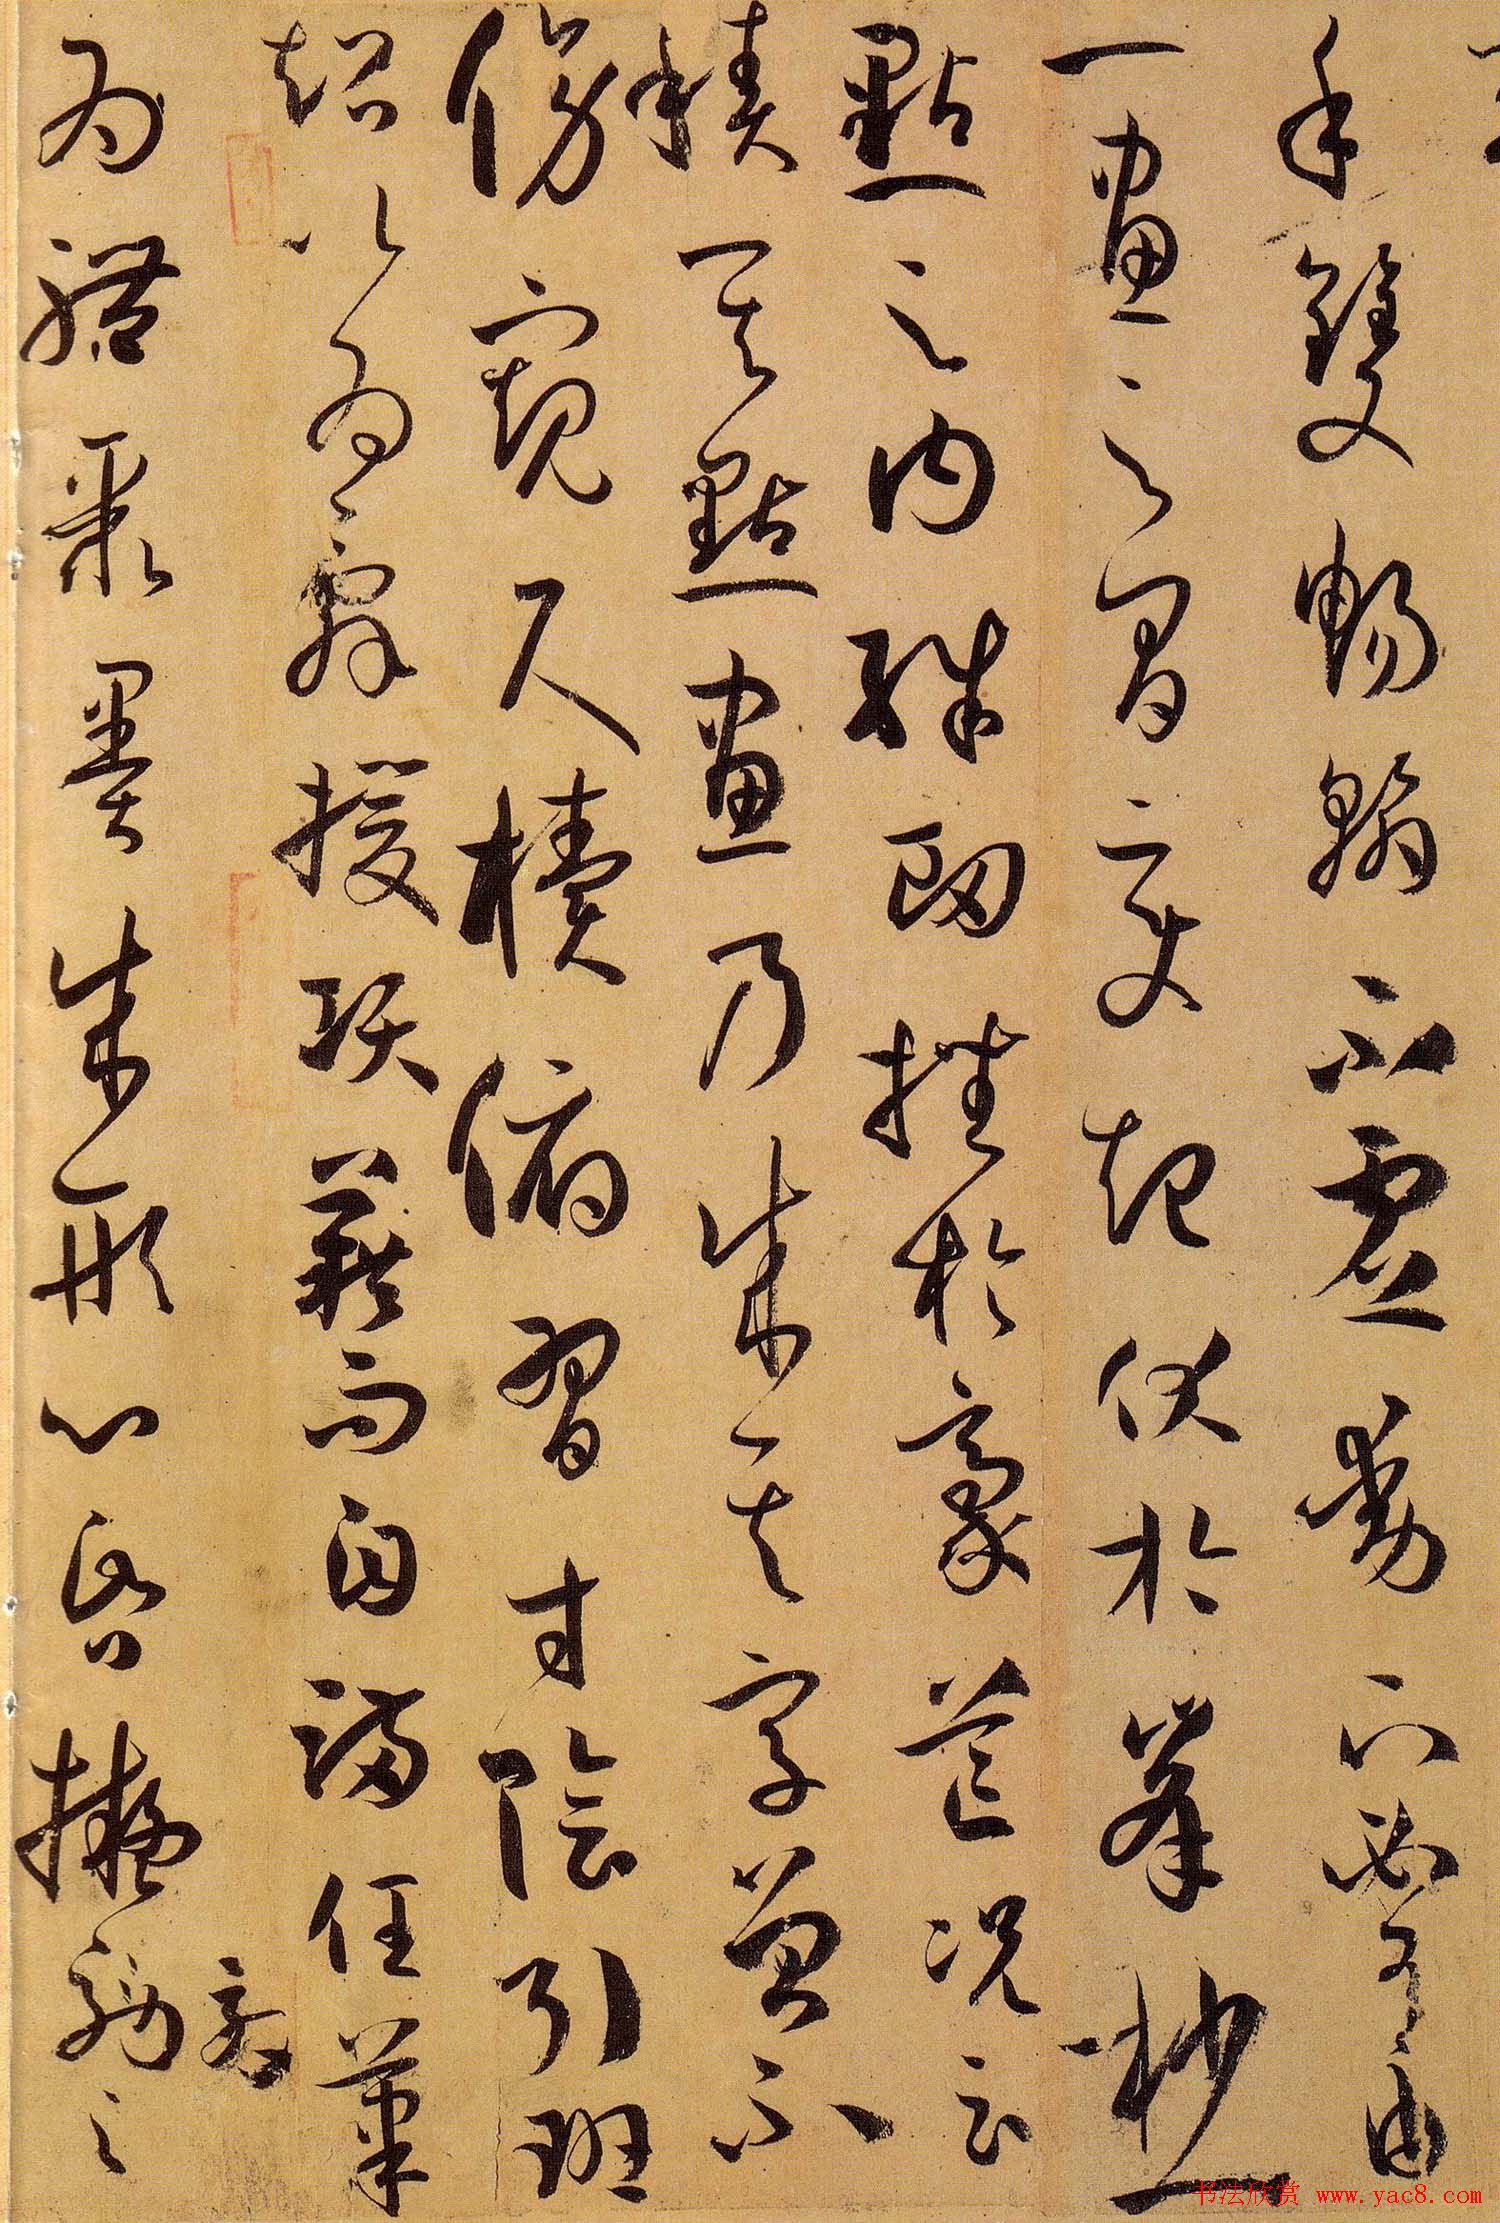 手雙暢翰不虛動下必有由
一畫之間變起伏於峯杪一
點之內殊衄挫於豪芒況云
積其點畫乃成其字曾不
傍窺尺牘俯習寸陰引班
超以為辭援項籍而自滿任筆
為體聚墨成形心昏擬效之
书法欣赏 www.yac8.com